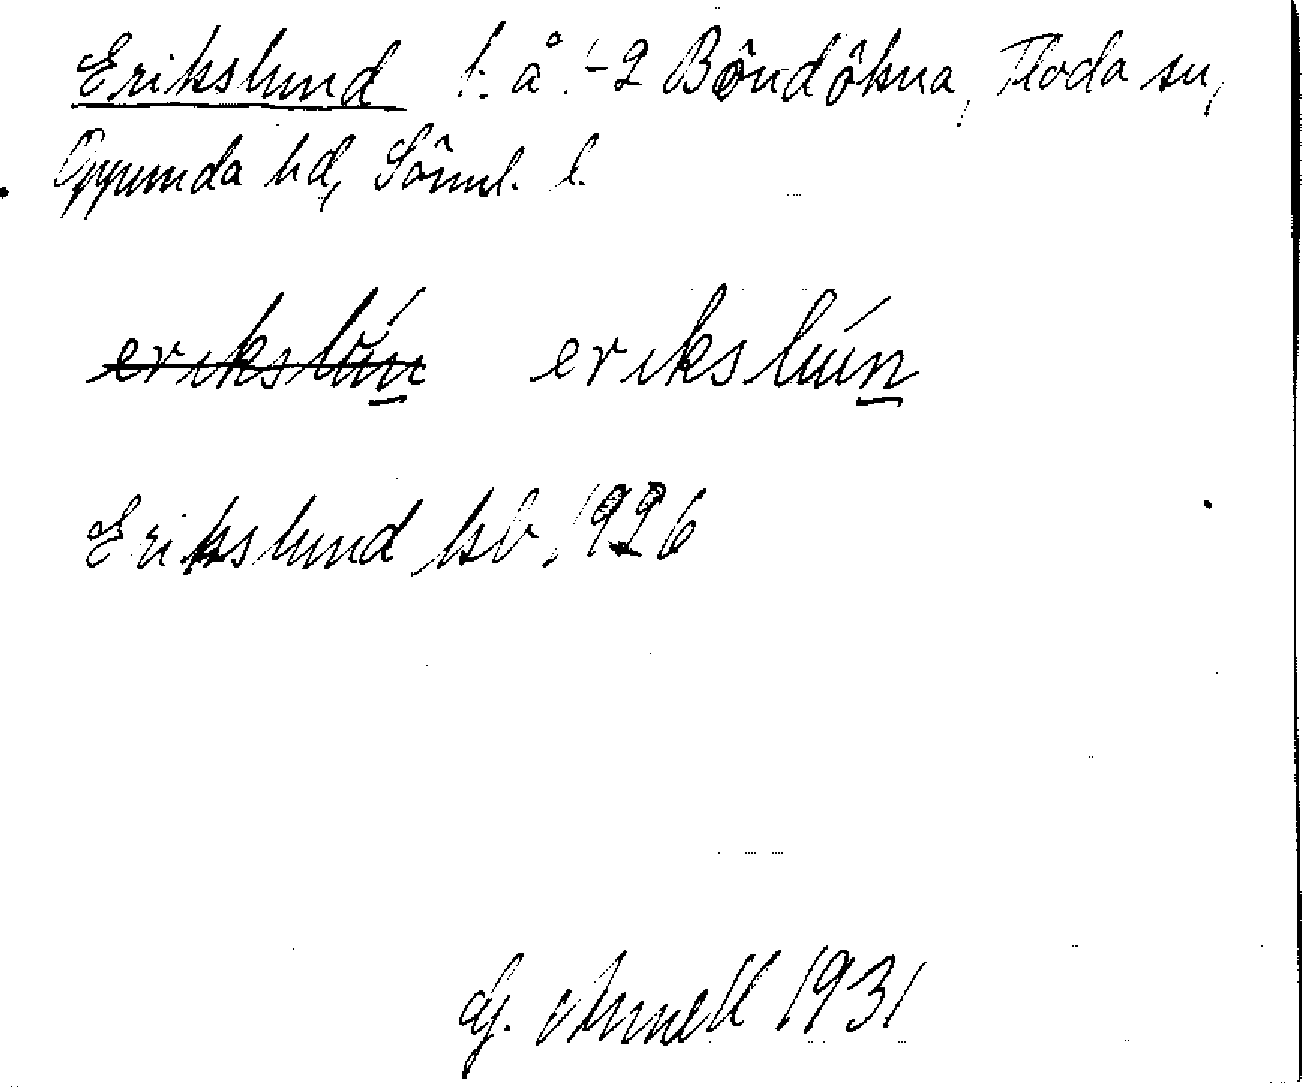 Erikslund t. å 1-2 Böndökna, Floda sn,
Oppunda hd, Sörml. l.
erikslún erikslún
Erikslund kb. 1926
G. Arnell 1931